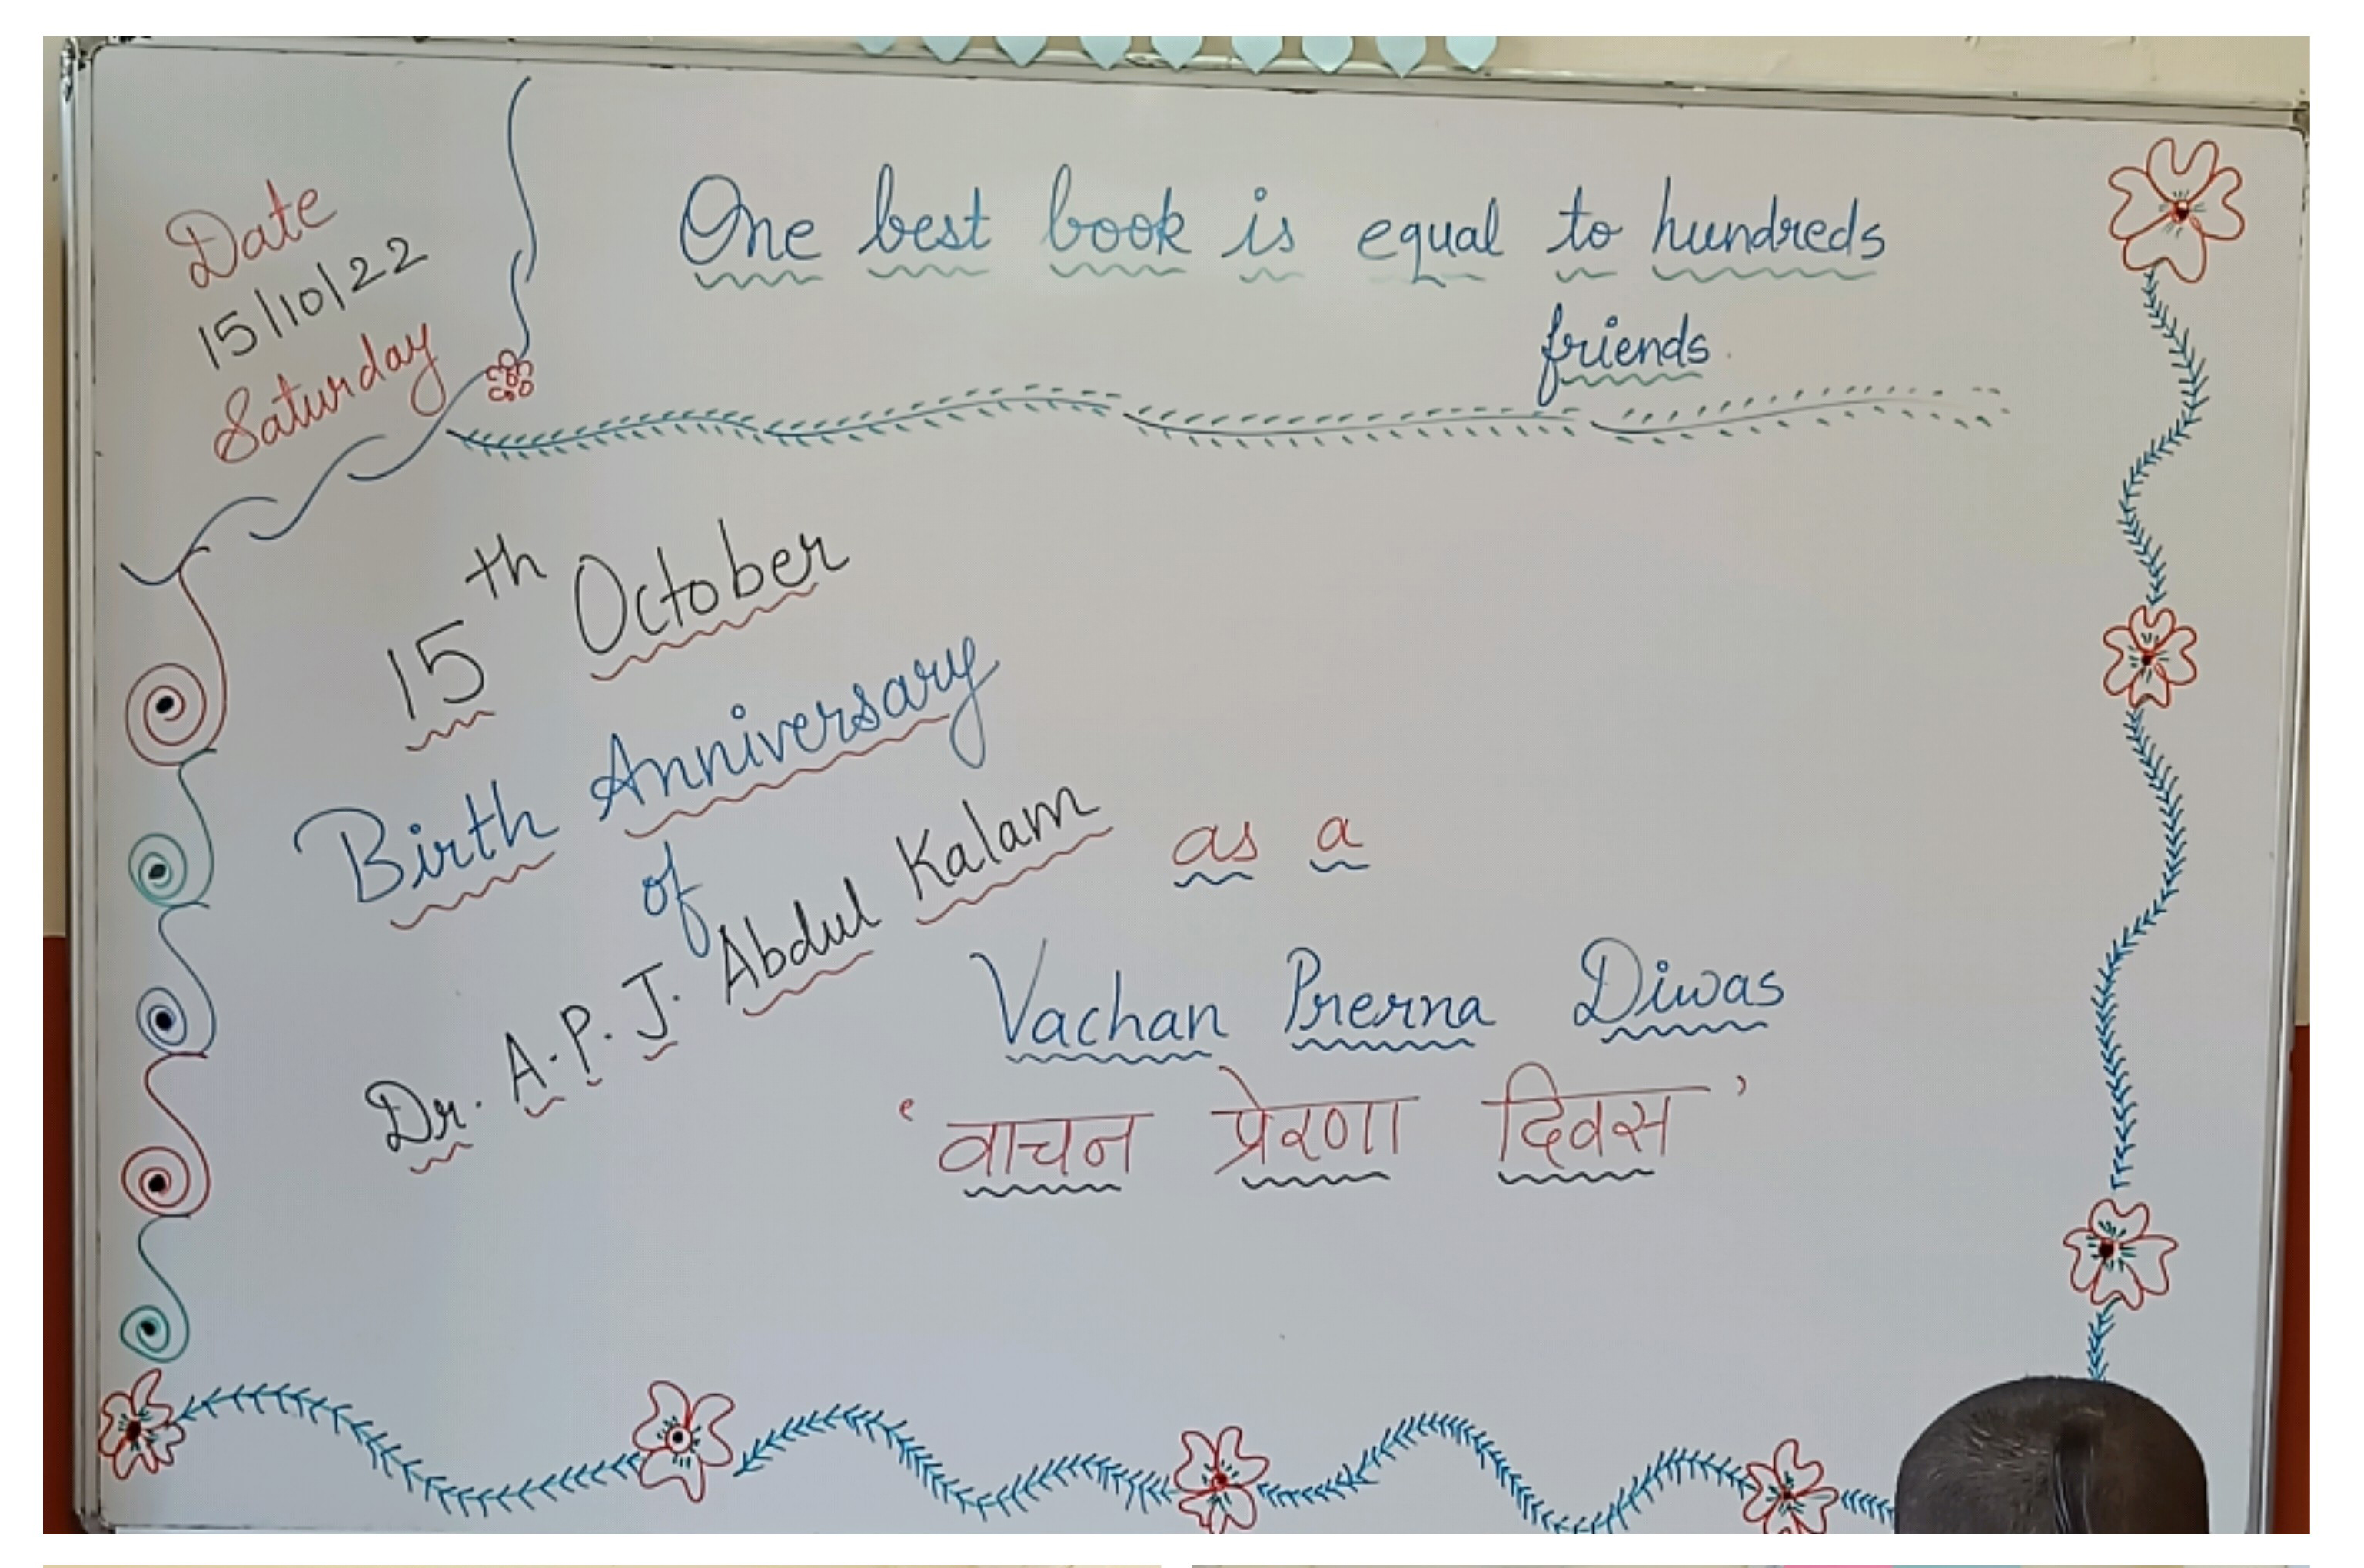 Date
15/10/22
Saturday
One best book is equal to hundreds
friends.
15th October
Birth Anniversary
of
Dr. A. P. J. Abdul Kalam as a
Vachan Prerna Diwas
‘ वाचन प्रेरणा दिवस ’